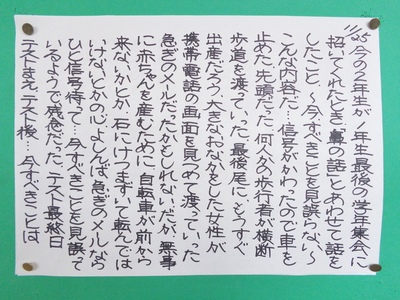 11/25 今の2年生が一年生最後の学年集会に
招いてくれたとき「鼻の話」とあわせて話を
したこと。〜今すべきことを見誤らない〜
こんな内容だ…信号がかわったので車を
止めた。先頭だった。何人かの歩行者が横断
歩道を渡っていた。最後尾に、もうすぐ
出産だろう、大きなおなかをした女性が
携帯電話の画面を見つめて渡っていった
急ぎのメルだったかもしれない。だが、無事
に赤ちゃんを産むために、自転車が前から
来ないかとか、石にけつまずいて転んでは
いけないとかの心。よしんば、急ぎのメルなら
ひと信号待って…今すべきことを見誤って
いるようで残念だった。テスト最終日
テストまえ、テスト後…今すべきことは